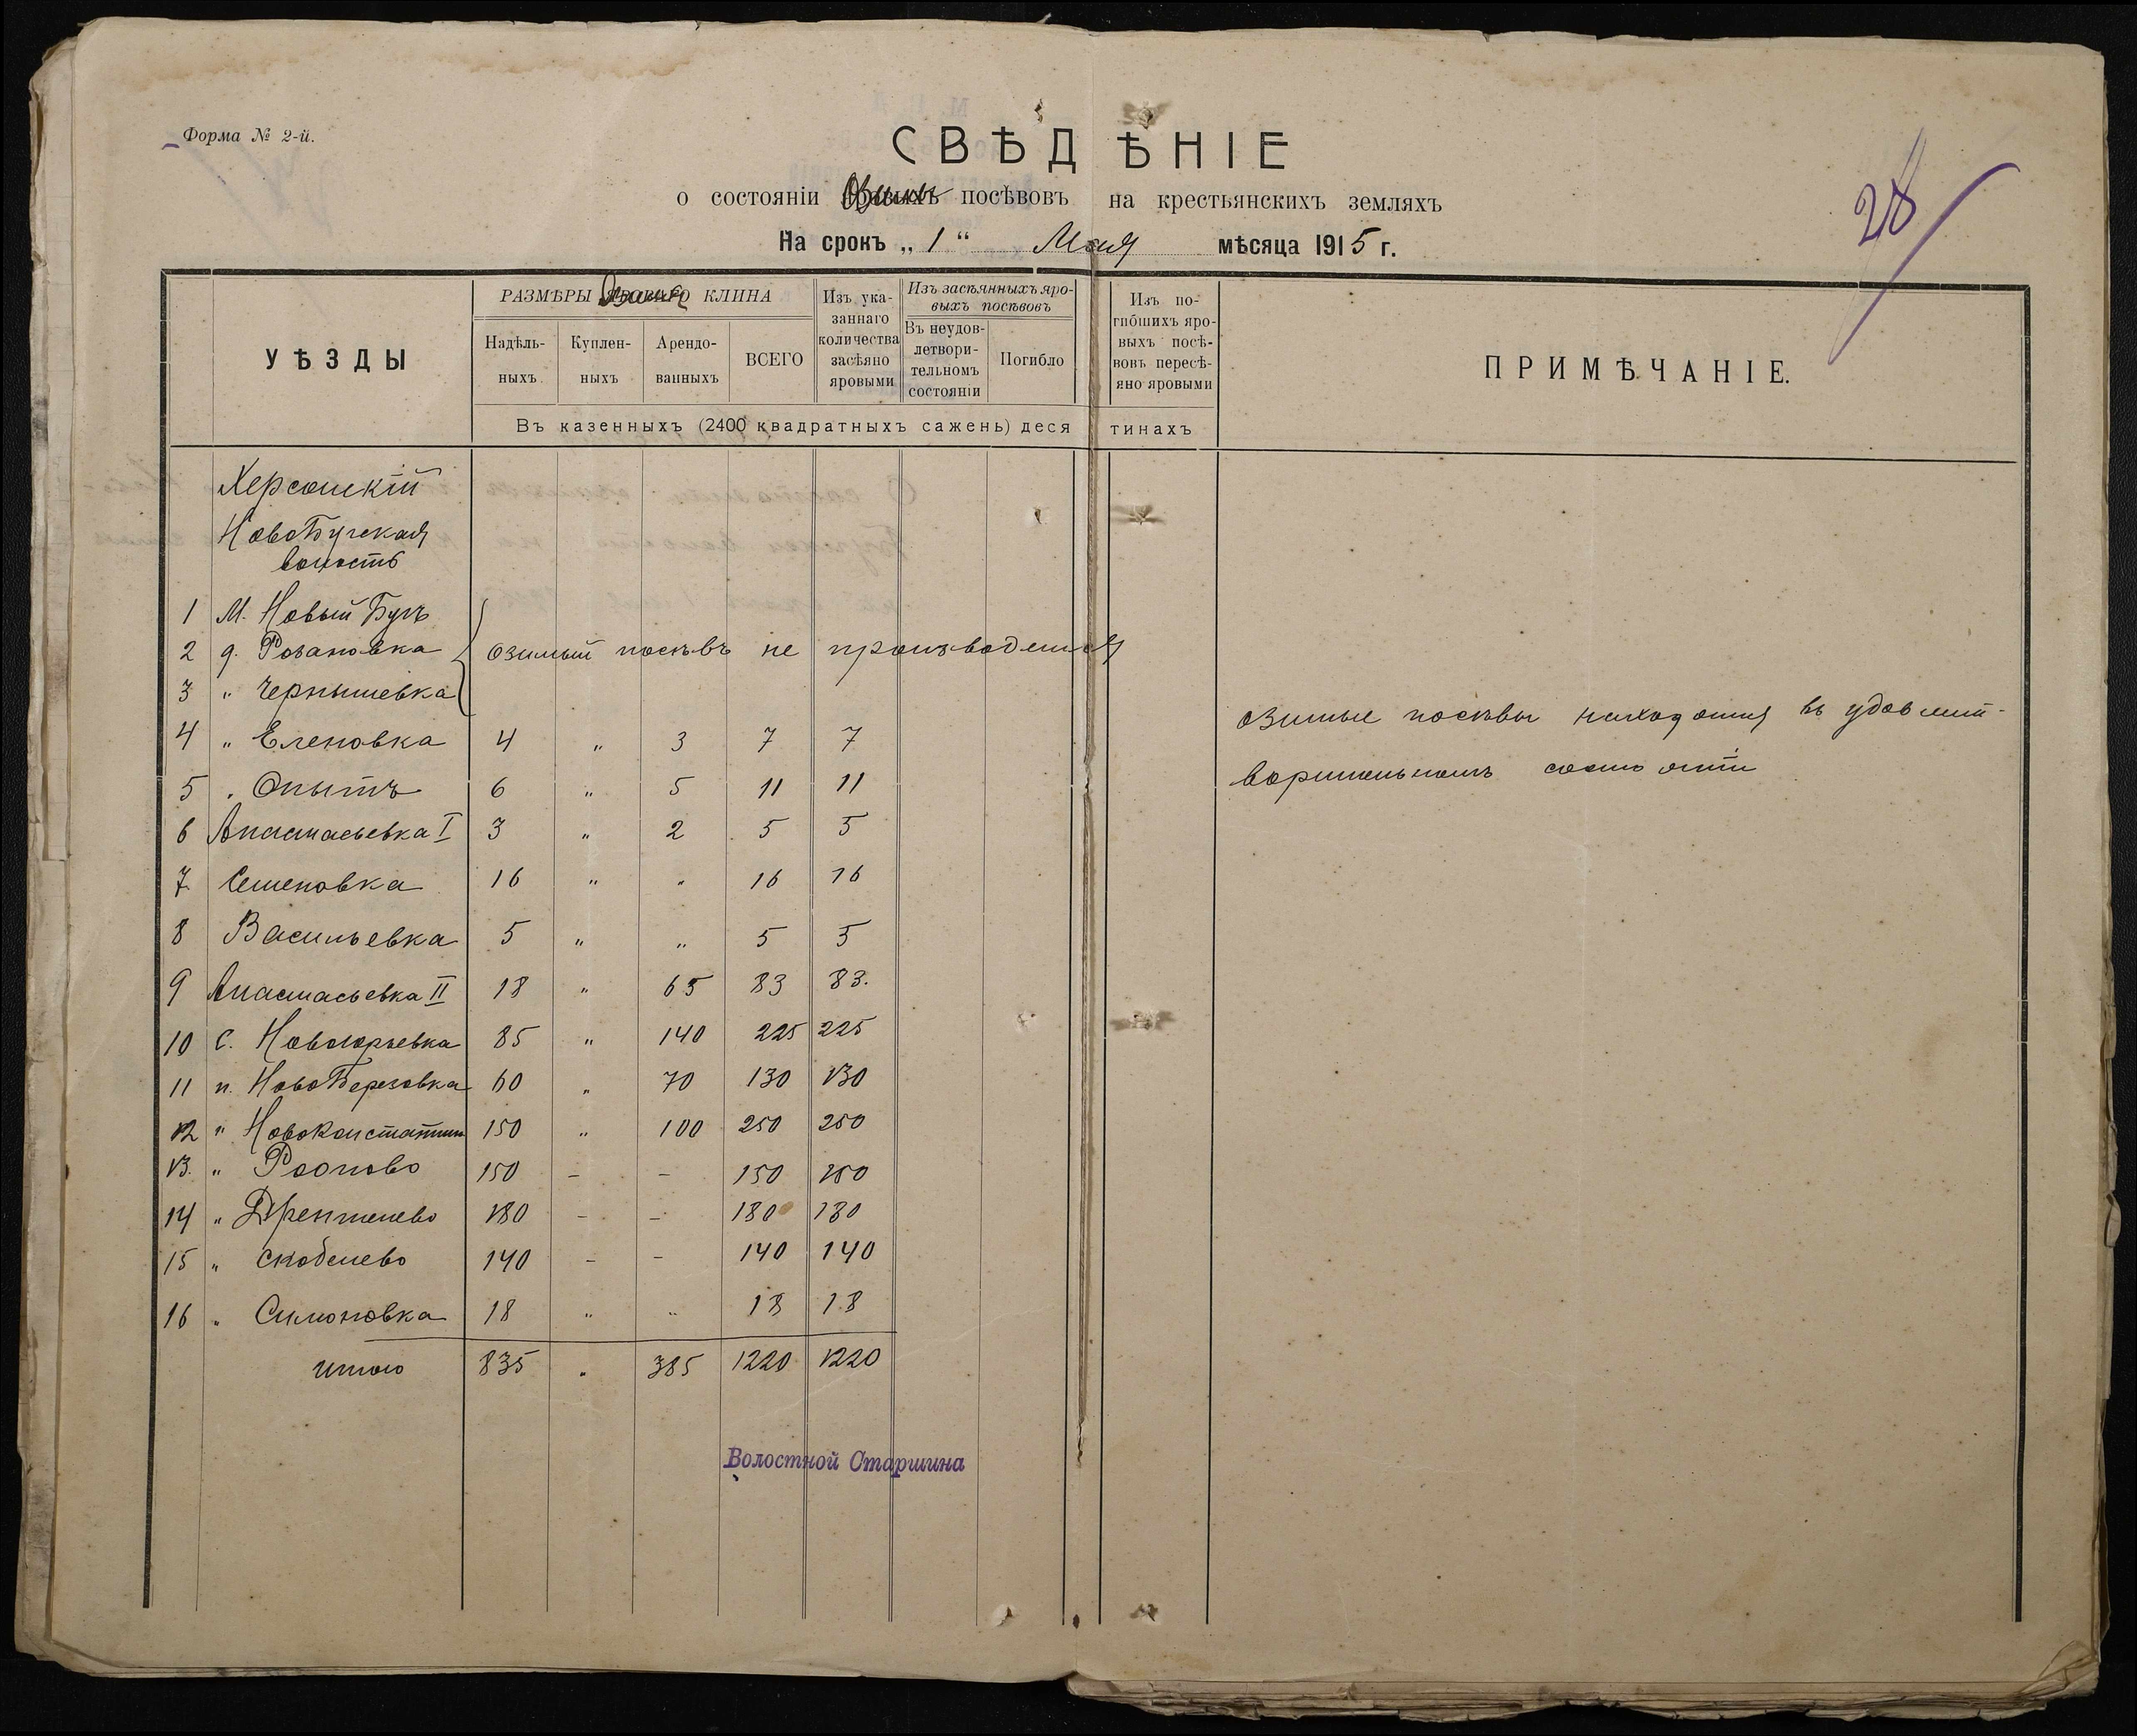 Форма № 2-й.
28
СВѢДѢНІЕ
о состояніи Озимыхъ посѣвовъ на крестьянскихъ земляхъ
На срокъ „ 1 “ Мая мѣсяца 1915 г.
УѢЗДЫ
РАЗМѢРЫ Озимаго КЛИНА
Надѣль-
ныхъ
Куплен-
ныхъ
Арендо-
ванныхъ
ВСЕГО
Изъ ука-
заннаго
количества
засѣяно
яровыми
Изъ засѣянныхъ яро-
выхъ посѣвовъ
Въ неудов-
летвори-
тельномъ
состояніи
Погибло
Изъ по-
гибшихъ яро-
выхъ посѣ-
вовъ пересѣ-
яно яровыми
ПРИМѢЧАНІЕ.
Въ казенныхъ (2400 квадратныхъ сажень) десятинахъ
Херсонскій
НовоБугская
волость
1 М. Новый Бугъ
2 д. Розановка озимый посѣвъ не производится
3 „ Чернышевка
4 „ Еленовка 4 „ 3 7 7
5 „ Опытъ 6 „ 5 11 11
6 Анастасьевка I 3 „ 2 5 5
7 Семеновка 16 „ „ 16 16
8 Васильевка 5 „ „ 5 5
9 Анастасьевка II 18 „ 65 83 83.
10 С. Новоюрьевка 85 „ 140 225 225
11 п. НовоБерезовка 60 „ 70 130 130
12 „ НовоКонстантин 150 „ 100 250 250
13. „ 150 – – 150 150
14 „ Дрентелево 180 – – 180 180
15 „ Скобелево 140 – – 140 140
16 „ Симоновка 18 „ „ 18 18
итого 835 „ 385 1220 1220
озимые посѣвы находятся въ удовлет-
ворительномъ состояніи
Волостной Старшина